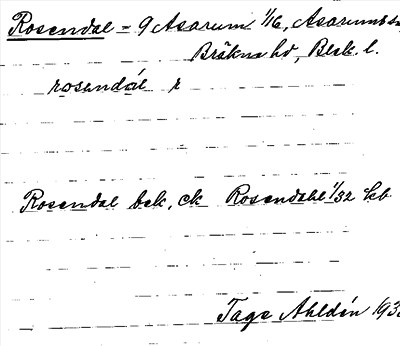 Rosendal = 9 Asarum 1/16, Asarums
Bräkne hd, Blek. l.
rosendál r
Rosendal bek, ck Rosendahl 1/32 kb
Tage Ahldén 193